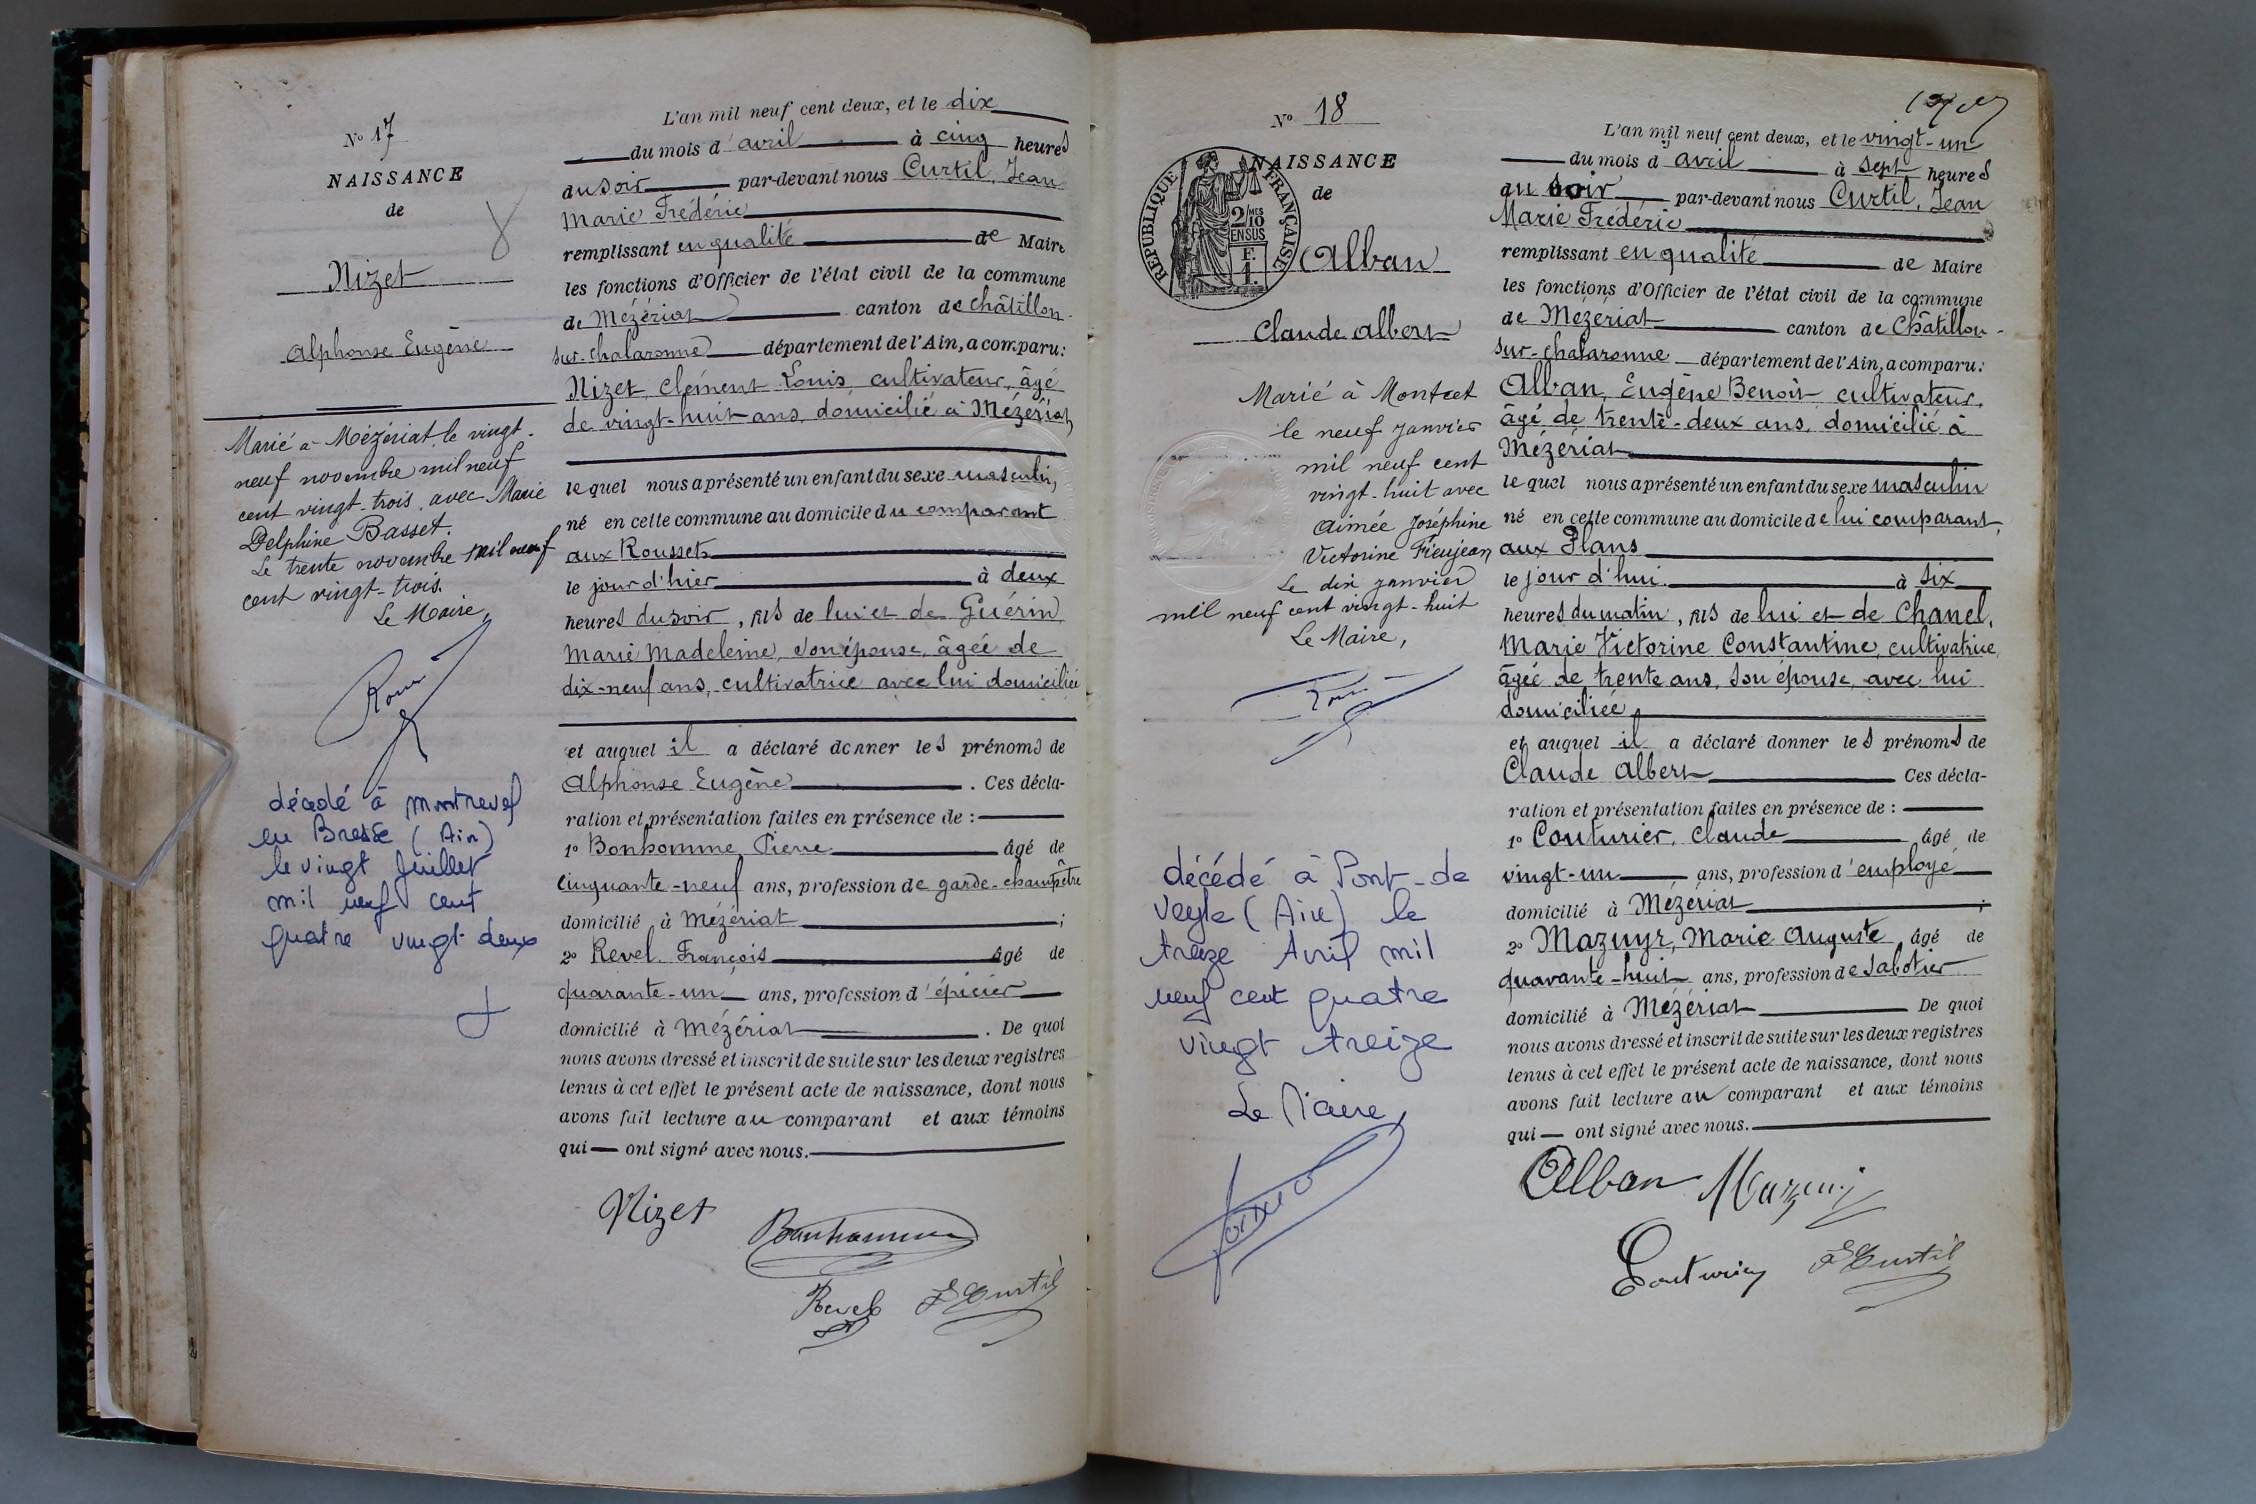 N° 17
NAISSANCE
de
Nizet
Alphonse Eugène
Marié à Mézériat le vingt-
neuf novembre mil neuf
cent vingt-trois avec Marie
Delphine Basset.
Le trente novembre mil neuf
cent vingt-trois.
Le Maire,
décédé à Montrevel
en Bresse (Ain)
le vingt Juillet
mil neuf cent
quatre vingt deux
L'an mil neuf cent deux, et le dix
du mois d'avril à cinq heures
du soir par-devant nous Curtil, Jean
Marie Frédéric
remplissant en qualité de Maire
les fonctions d'Officier de l'état civil de la commune
de Mézériat canton de Châtillon-
sur-chalaronne département de l'Ain, a comparu:
Nizet, Clément Louis, cultivateur, âgé
de vingt-huit ans, domicilié à Mézériat,
lequel nous a présenté un enfant du sexe masculin,
né en cette commune au domicile du comparant
aux Roussets
le jour d'hier à deux
heures du soir, fils de lui et de Guérin
Marie Madeleine, son épouse, âgée de
dix-neuf ans, cultivatrice avec lui domiciliée
et auquel il a déclaré donner les prénoms de
Alphonse Eugène. Ces décla-
ration et présentation faites en présence de :
1° Bonhomme, Pierre âgé de
cinquante-neuf ans, profession de garde-champêtre
domicilié à Mézériat ;
2° Revel, François âgé de
quarante-un ans, profession d'épicier
domicilié à Mézériat. De quoi
nous avons dressé et inscrit de suite sur les deux registres
tenus à cet effet le présent acte de naissance, dont nous
avons fait lecture au comparant et aux témoins
qui ont signé avec nous.
Nizet
Bonhomme
Revel
F Curtil
N° 18
NAISSANCE
de
RÉPUBLIQUE FRANÇAISE
2/10 MES
EN SUS
F.
1.
Alban
Claude Albert
Marié à Montcet
le neuf janvier
mil neuf cent
vingt-huit avec
Aimée Joséphine
Victorine Fieujean
Le dix janvier
mil neuf cent vingt-huit
Le Maire,
décédé à Pont-de
Veyle (Ain) le
treize Avril mil
neuf cent quatre
vingt treize
Le Maire
L'an mil neuf cent deux, et le vingt-un
du mois d'avril à sept heures
du soir par-devant nous Curtil, Jean
Marie Frédéric
remplissant en qualité de Maire
les fonctions d'Officier de l'état civil de la commune
de Mézériat canton de Châtillon-
sur-chalaronne département de l'Ain, a comparu:
Alban, Eugène Benoît cultivateur,
âgé de trente-deux ans, domicilié à
Mézériat
lequel nous a présenté un enfant du sexe masculin
né en cette commune au domicile de lui comparant,
aux Plans
le jour d'hui à six
heures du matin, fils de lui et de Chanel,
Marie Victorine Constantine, cultivatrice,
âgée de trente ans, son épouse, avec lui
domiciliée
et auquel il a déclaré donner les prénoms de
Claude Albert Ces décla-
ration et présentation faites en présence de :
1° Couturier, Claude âgé de
vingt-un ans, profession d'employé
domicilié à Mézériat ;
2° Mazuyr, Marie Auguste âgé de
quarante-huit ans, profession de sabotier
domicilié à Mézériat De quoi
nous avons dressé et inscrit de suite sur les deux registres
tenus à cet effet le présent acte de naissance, dont nous
avons fait lecture au comparant et aux témoins
qui ont signé avec nous.
Alban
Couturier
F Curtil